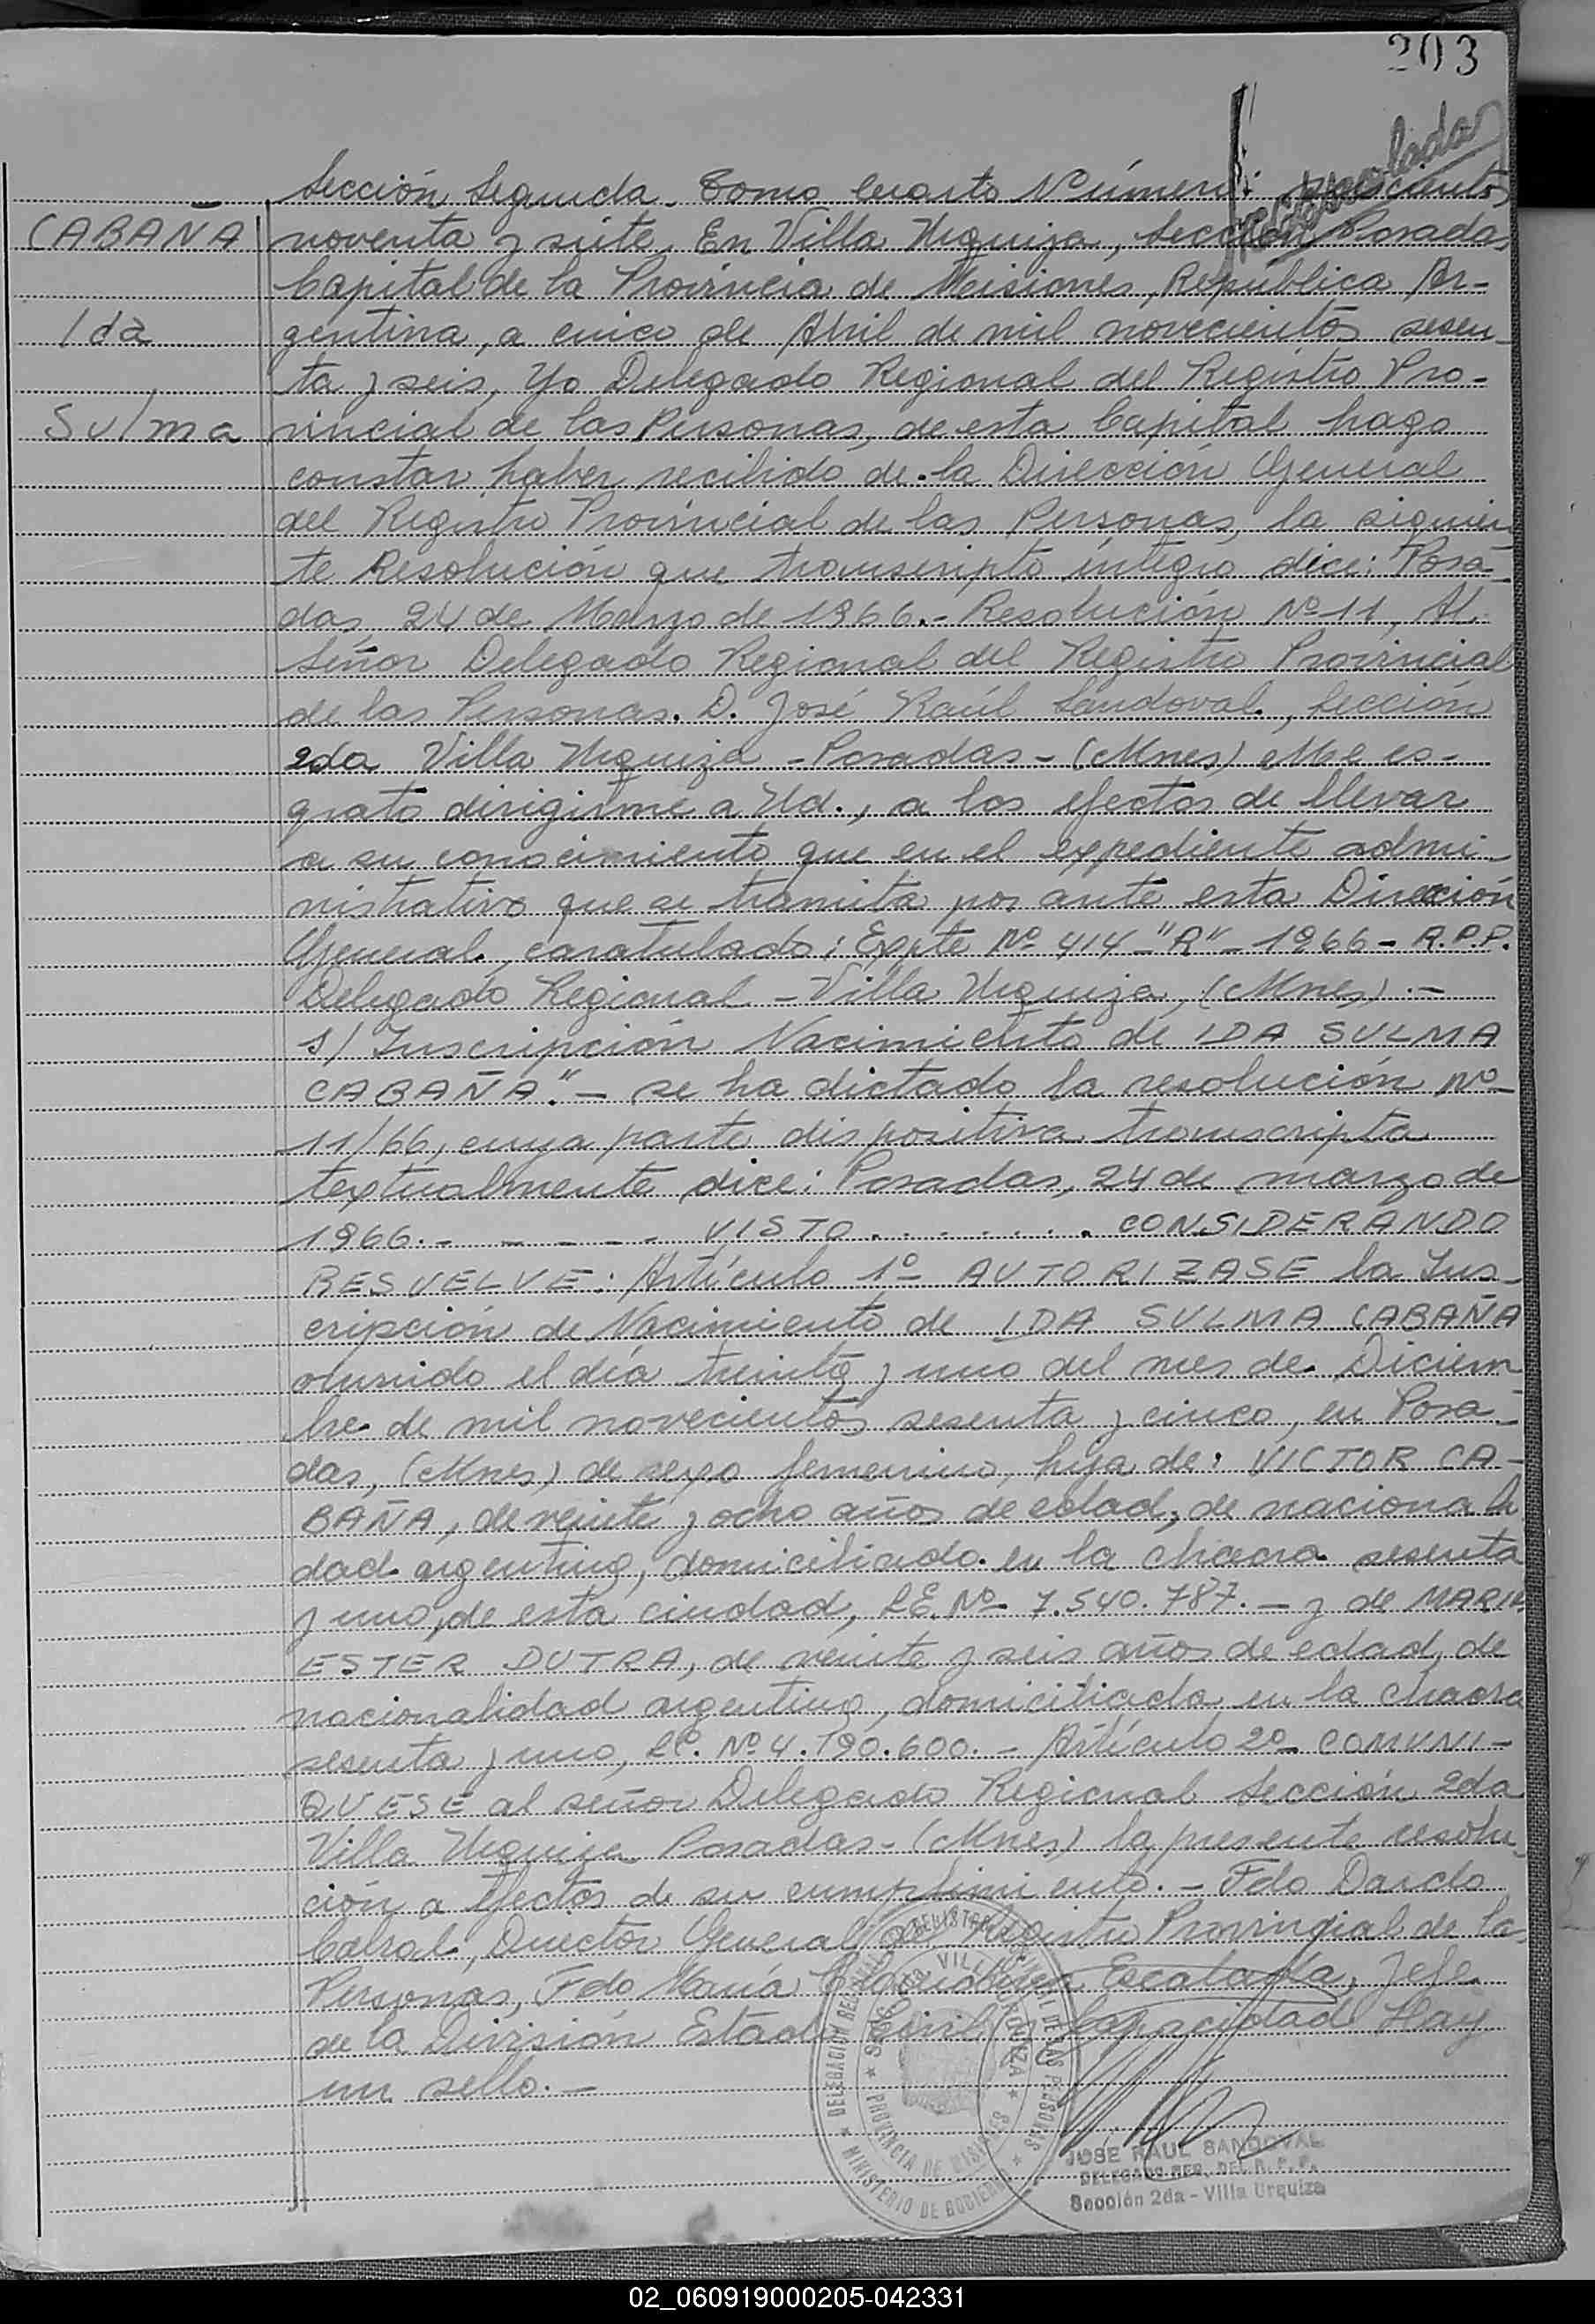 203
Sección Segunda. Tomo Cuarto Número:
CABAÑA
noventa y siete. En Villa Urquiza, Sección Posadas,
Capital de la Provincia de Misiones, República Ar-
Ida
gentina, a cinco de Abril de mil novecientos sesen-
ta y seis, Yo Delegado Regional del Registro Pro-
Sulma
vincial de las Personas, de esta Capital hago
constar haber recibido de la Dirección General
del Registro Provincial de las Personas, la siguien
te Resolución que transcripto íntegro dice: Posa-
das, 24 de Marzo de 1966.- Resolución Nº 11, Al.
Señor Delegado Regional del Registro Provincial
de las Personas. D. José Raúl Sandoval., Sección
2da Villa Urquiza - Posadas - (Mnes) Me es-
grato dirigirme a Ud., a los efectos de llevar
a su conocimiento que en el expediente admi-
nistrativo que se tramita por ante esta Dirección
General, caratulado: Expte Nº 414 "R" - 1966 - R.P.P.
Delegado Regional - Villa Urquiza, (Mnes) .-
s/ Inscripción Nacimiento de IDA SULMA
CABAÑA". - se ha dictado la resolución Nº
11/66, cuya parte dispositiva transcripta
textualmente dice: Posadas, 24 de marzo de
1966. - - - - - - VISTO . . . . . . . CONSIDERANDO
RESUELVE: Artículo 1º - AUTORIZASE la Ins-
cripción de Nacimiento de IDA SULMA CABAÑA
ocurrido el día treinta y uno del mes de Diciem
bre de mil novecientos sesenta y cinco, en Posa-
das, (Mnes) de sexo femenino, hija de: VICTOR CA-
BAÑA, de veinte y ocho años de edad, de nacionali
dad argentina, domiciliado en la chacra sesenta
y uno, de esta ciudad, L.E. Nº 7.540.787. - y de MARIA
ESTER DUTRA, de veinte y seis años de edad, de
nacionalidad argentina, domiciliada en la chacra
sesenta y uno, L.C. Nº 4.190.600. - Artículo 2º - COMUNI-
QUESE al señor Delegado Regional Sección 2da
Villa Urquiza Posadas - (Mnes) la presente resolu-
ción a efectos de su cumplimiento. - Fdo Dardo
Cabral, Director General del Registro Provincial de las
Personas, Fdo María Escalada, Jefe
de la División Estado Civil y Capacidad Hay
un sello. -
DELEGACION
VILLA URQUIZA
PROVINCIA DE MISIONES
MINISTERIO DE GOBIERNO
JOSE RAUL SANDOVAL
DELEGADO REG. DEL R. P. P.
Sección 2da - Villa Urquiza
02_060919000205-042331